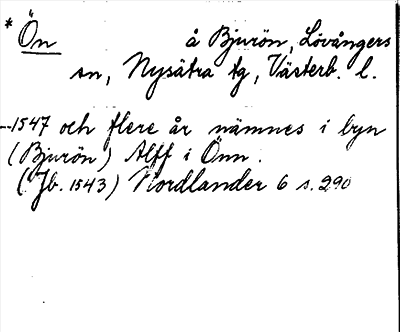 * Ön å Bjurön, Lövångers
sn, Nysätra tg, Västerb. l.
–1547 och flere år nämnes i byn
(Bjurön) Alff i Önn.
(Jb. 1543) Nordlander 6 s. 290